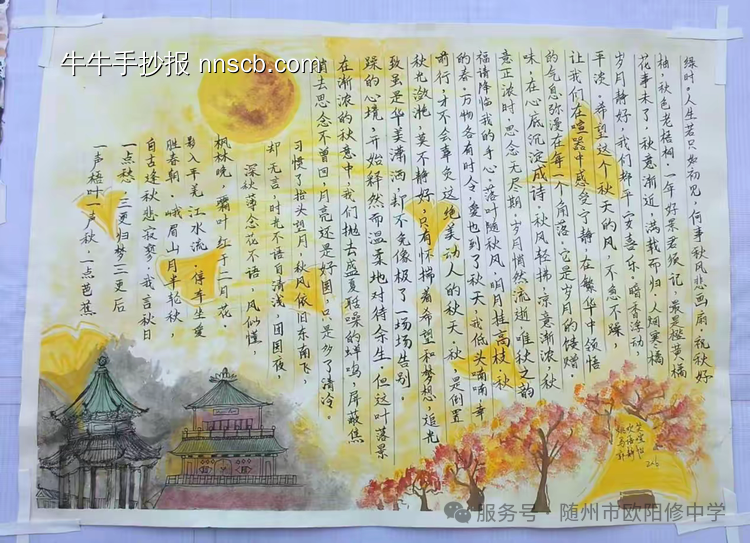 牛牛手抄报 nnscb.com
绿时，人生若只如初见，何事秋风悲画扇，祝秋好
柚，秋色老梧桐，一年好景君须记，最是橙黄橘
花事未了，秋意渐近，满载而归，人烟寒橘
岁月静好，我们都平安喜乐，暗香浮动，
平淡，希望这个秋天的风，不急不躁，
让我们在喧嚣中感受宁静，在繁华中领悟
的气息弥漫在每一个角落，它是岁月的馈赠
味，在心底沉淀成诗，秋风轻拂，凉意渐浓，秋
意正浓时，思念无尽期，岁月悄然流逝，唯秋之韵
福请降临我的手心，落叶随秋风，明月挂高枝，秋
的春，万物各有时令，爱也到了秋天，我低头喃喃，幸
前行，才不会辜负这绝美动人的秋天，秋，是倒置
秋光潋滟，莫不静好，只有怀揣着希望和梦想，追光
致虽是华美潇洒，却不免像极了一场场告别，
躁的心境，开始释然而温柔地对待余生，但这叶落景
在渐浓的秋意中，我们抛去盛夏聒噪的蝉鸣，屏蔽焦
消去思念不曾回，月亮还是好圆，只是多了清冷，
习惯了抬头望月，秋风依旧东南飞，
却无言，时光不语自清浅，团圆夜，
深秋落念花不语，风似懂，
枫林晚，霜叶红于二月花。
影入平羌江水流，停车坐爱
胜春朝，峨眉山月半轮秋，
自古逢秋悲寂寥，我言秋日
一点愁，三更归梦三更后
一声梧叶一声秋，一点芭蕉
服务号 · 随州市欧阳修中学